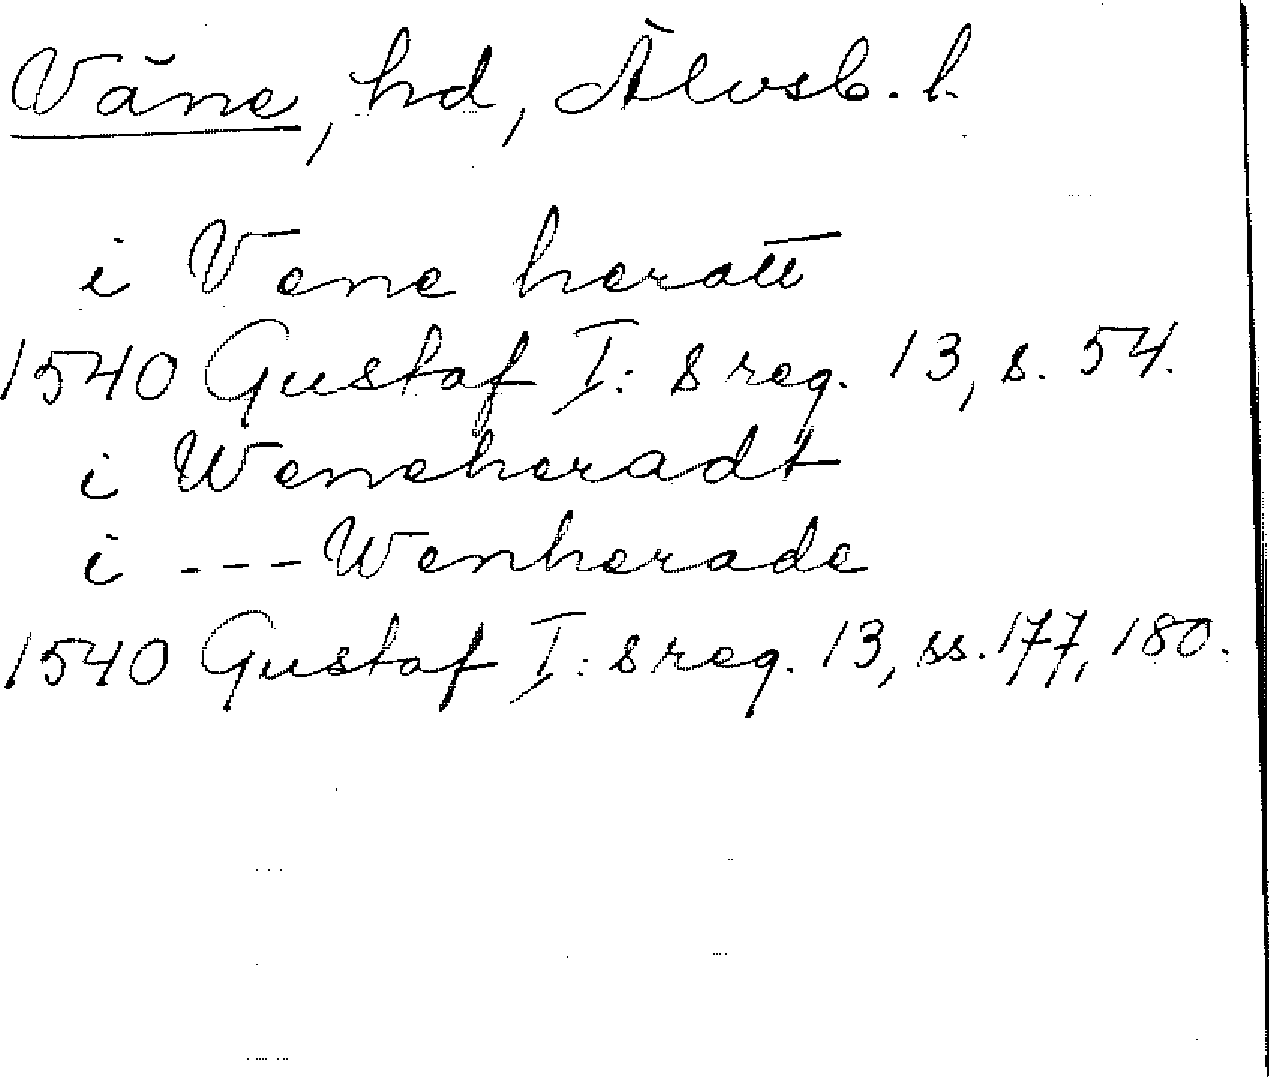 Väne, hd, Älvsb. l.
i Vene heratt
1540 Gustaf I: s reg. 13, s. 54.
i Weneheradt
i --- Wenherade
1540 Gustaf I: s reg. 13, ss. 177, 180.